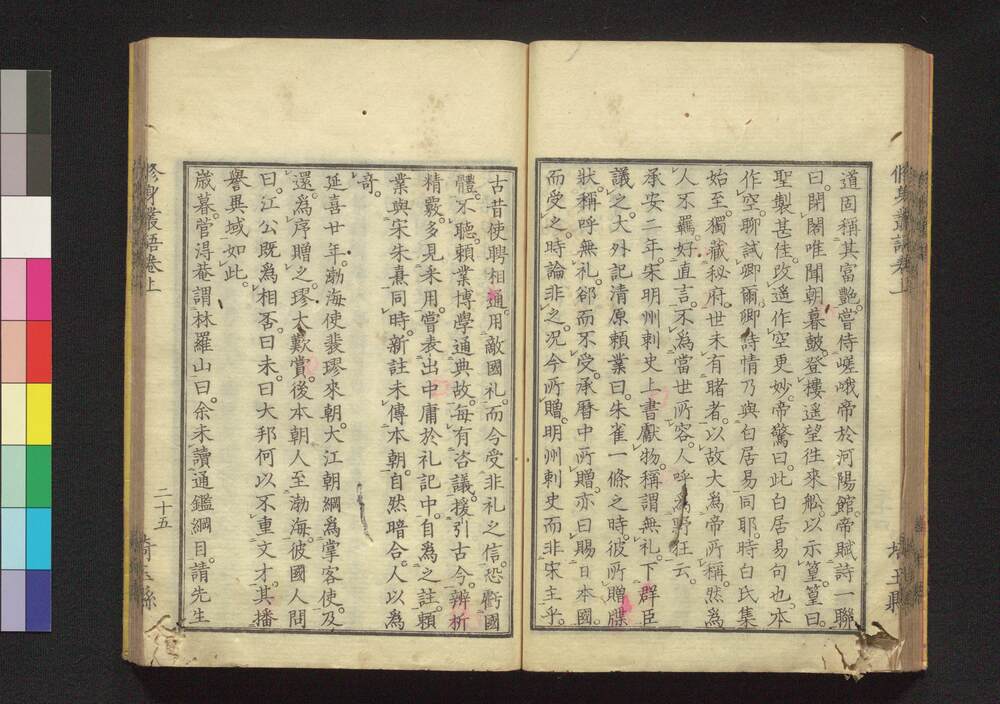 道固稱其富艷。嘗侍嵯峨帝於河陽館。帝賦詩一聯
曰。閉閣唯聞朝暮皷。登樓遥望往來舩。以示篁。篁曰。
聖製甚佳。改遥作空更妙。帝驚曰。此白居易句也。本
作空。聊試卿爾。卿詩情乃與白居易同耶。時白氏集
始至。獨藏秘府。世未有睹者。以故大為帝所稱。然為
人不羈。好直言。不為當世所容。人呼為野狂云。
承安二年。宋明州刺史上書獻物。稱謂無礼。下群臣
議之。大外記清原頼業曰。朱雀一條之時。彼所贈牒
状。稱呼無礼。郤而不受。承曆中所贈。亦曰賜日本國。
而受之。時論非之。况今所贈。明州刺史而非宋主乎。
古昔使聘相通。用敵國礼。而今受非礼之信。恐虧國
體。不聽。頼業博學通典故。每有咨議。援引古今。辨析
精覈。多見釆用。嘗表出中庸於礼記中。自為之註。頼
業與宋朱熹同時。新註未傳本朝。自然暗合。人以為
奇。
延喜廿年。渤海使裴璆來朝。大江朝綱為掌客使。及
還。為序贈之。璆大歎賞。後本朝人至渤海。彼國人問
曰。江公既為相否。曰未。曰大邦何以不重文才。其播
譽異域如此。
歳暮。菅得菴謂林羅山曰。余未讀通鑑綱目。請先生
修身叢語卷上
二十五